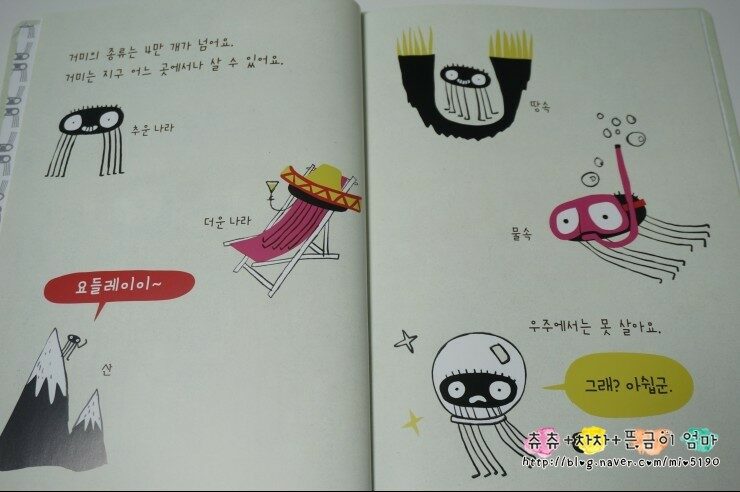 거미의 종류는 4만 개가 넘어요.
거미는 지구 어느 곳에서나 살 수 있어요.
추운 나라
더운 나라
요들레이이~
산
땅속
물속
우주에서는 못 살아요.
그래? 아쉽군.
츄츄+차차+뜬금이 엄마
http://blog.naver.com/mio5190